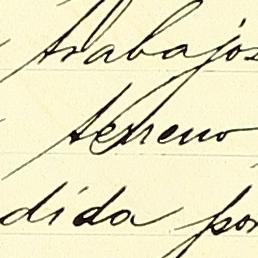 trabajos
terreno
dida por